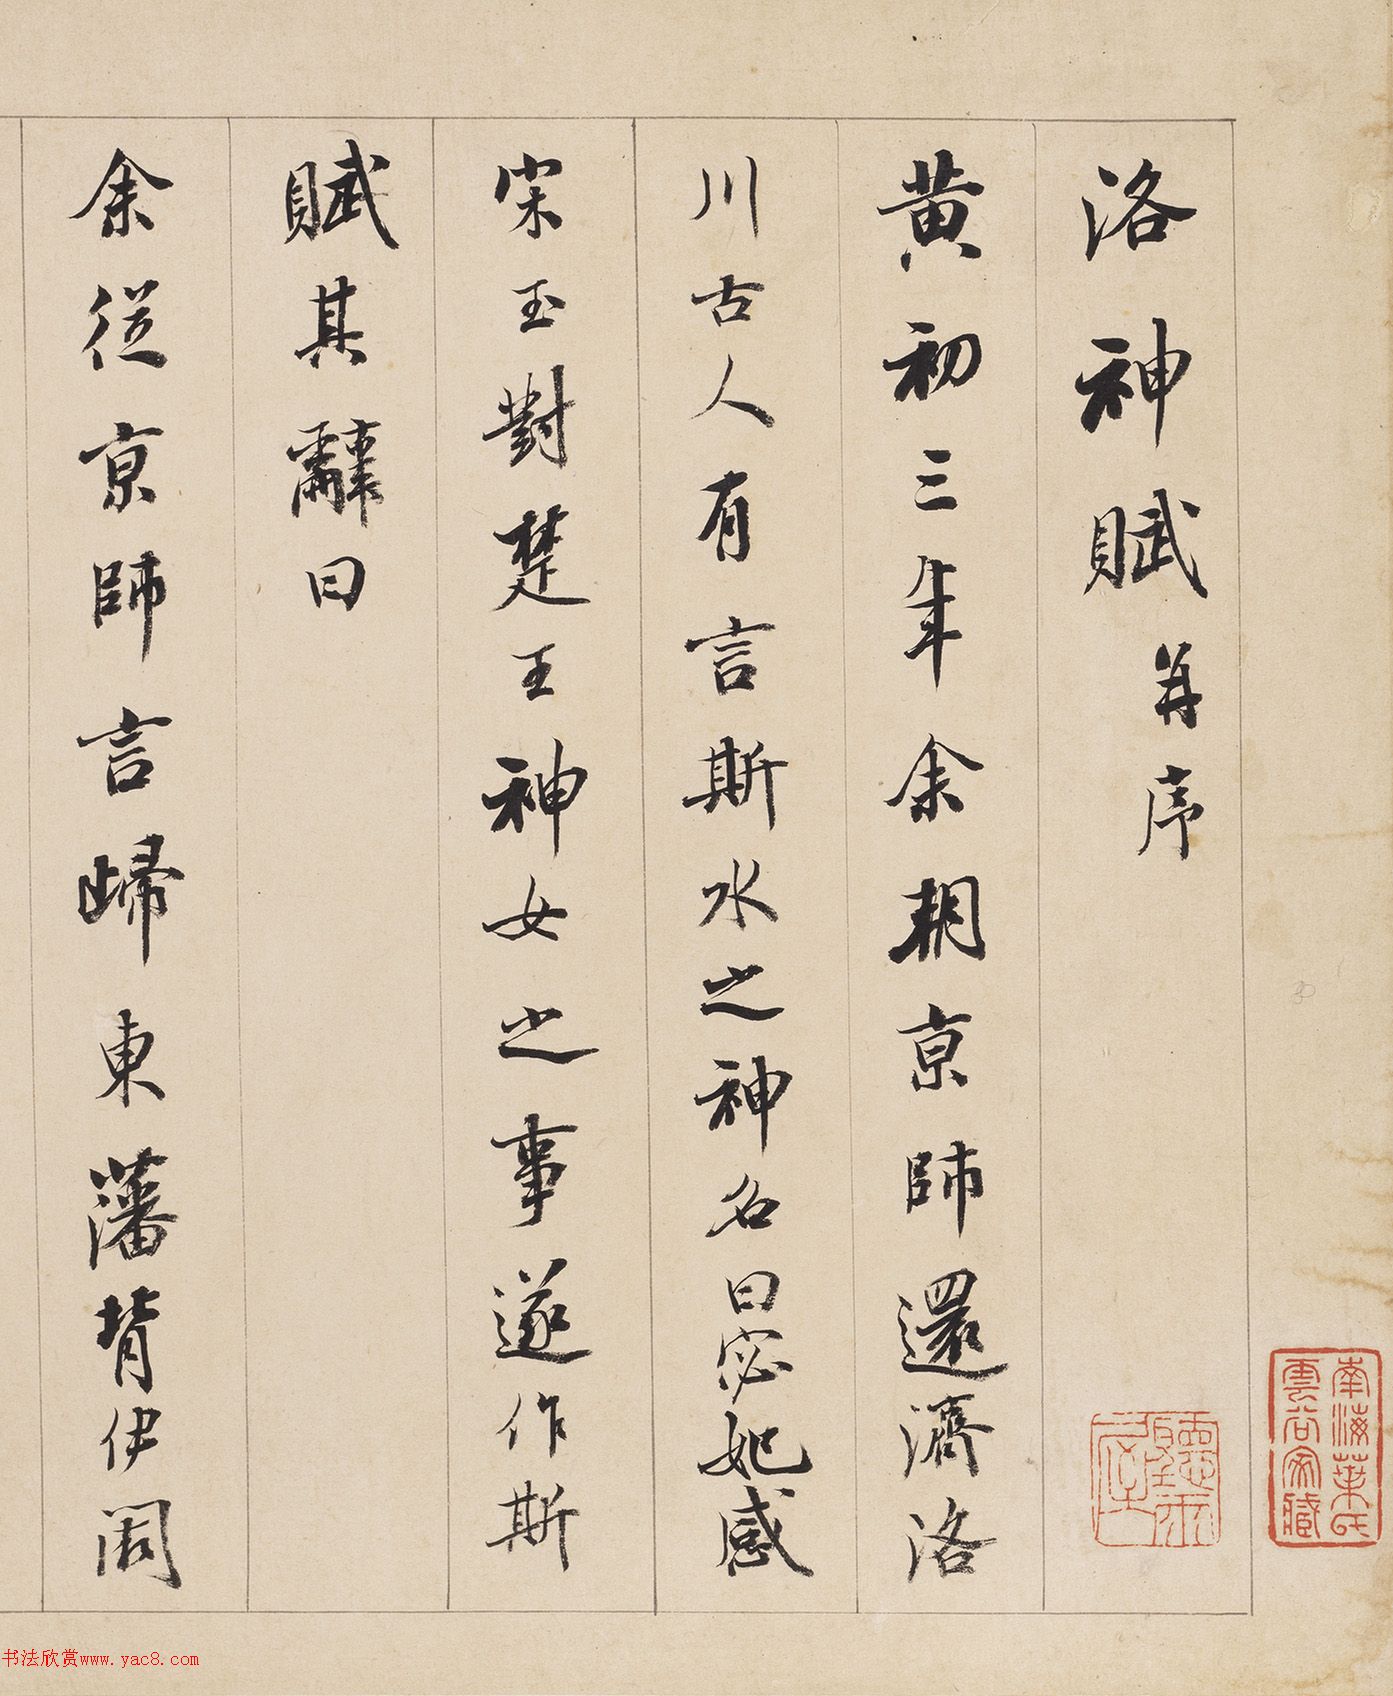 洛神賦并序
黄初三年余朝京師還濟洛
川古人有言斯水之神名曰宓妃感
宋玉對楚王神女之事遂作斯
賦其辭曰
余從京師言歸東藩背伊闕
南海葉氏
雲谷家藏
书法欣赏www.yac8.com